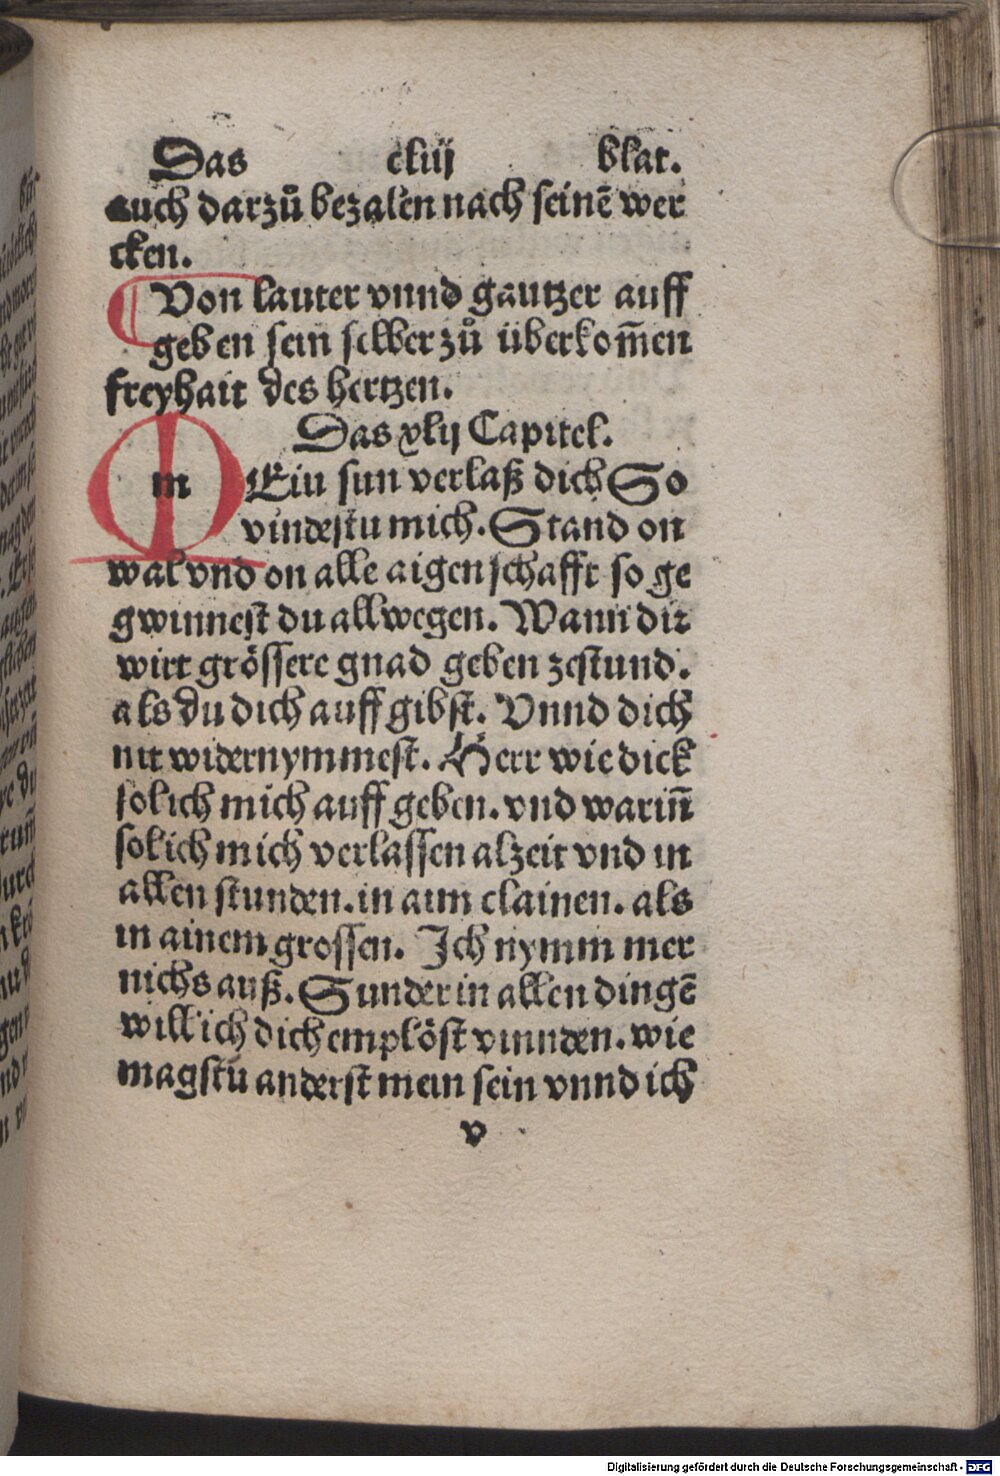 Das cliij blat.
auch darzů bezalen nach seinē wer
cken.
Von lauter vnnd gantzer auff
geben sein selber zů überkom̄en
freyhait des hertzen.
Das xlij Capitel.
MEin sun verlaß dich So
vindestu mich. Stand on
wal vnd on alle aigenschafft so ge
gwinnest du allwegen. Wann dir
wirt grössere gnad geben zestund.
als du dich auff gibst. Vnnd dich
nit widernymmest. Herr wie dick
solich mich auff geben. vnd warin̄
solich mich verlassen alzeit vnd in
allen stunden. in aim clainen. als
in ainem grossen. Ich nymm mer
nichs auß. Sunder in allen dingē
will ich dich emplöst vinnden. wie
magstu anderst mein sein vnnd ich
v
Digitalisierung gefördert durch die Deutsche Forschungsgemeinschaft - DFG